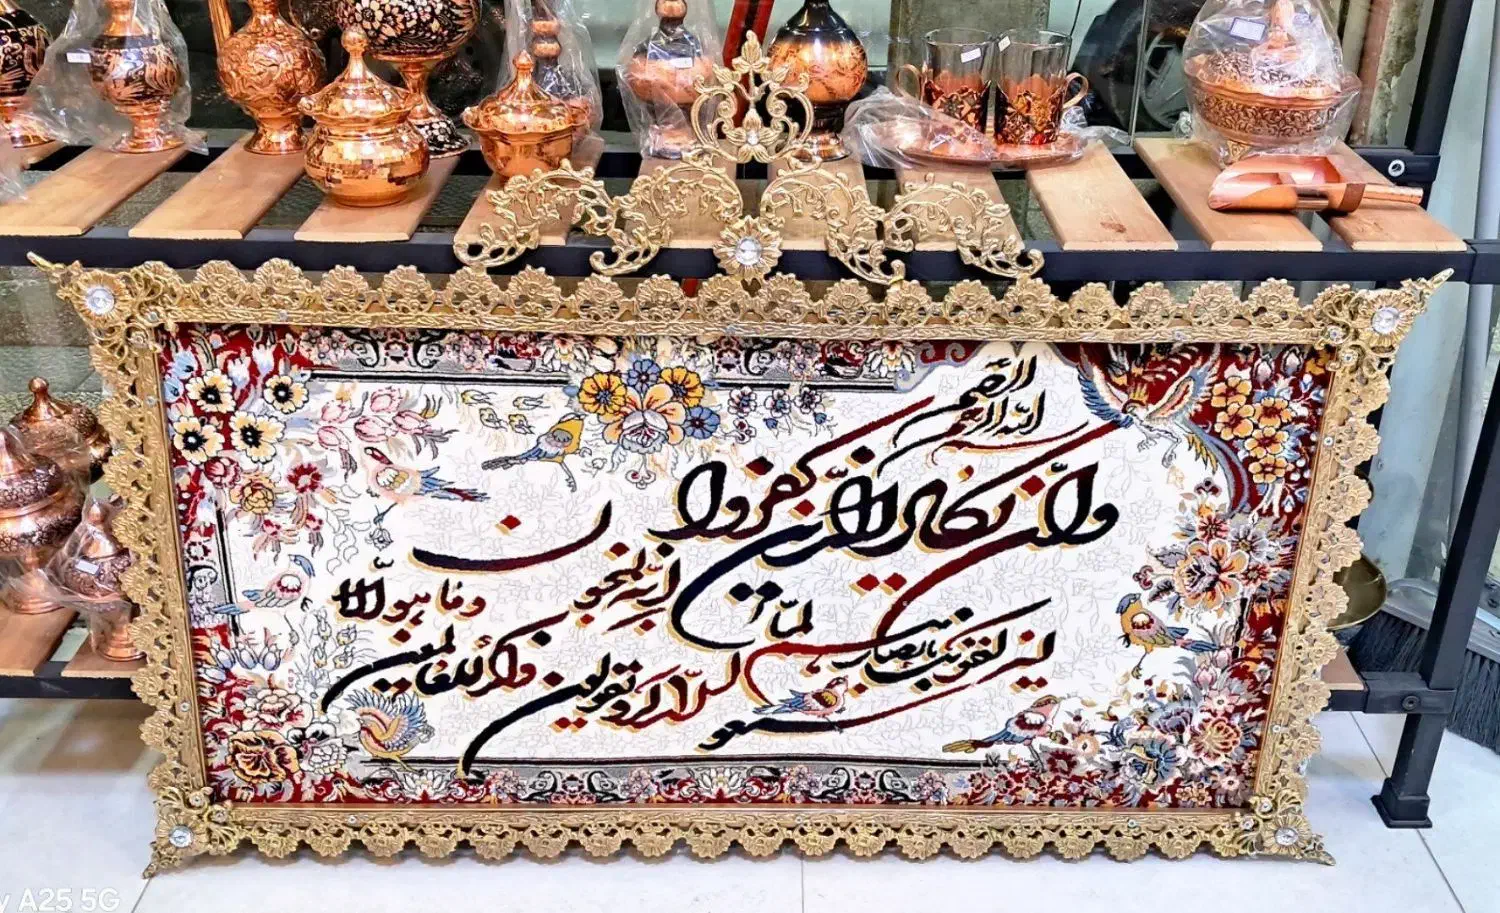 بسم الله الرحمن الرحيم
وإن يكاد الذين كفروا
ليزلقونك بأبصارهم لما سمعوا الذكر ويقولون إنه لمجنون
وما هو إلا ذكر للعالمين
A25 5G